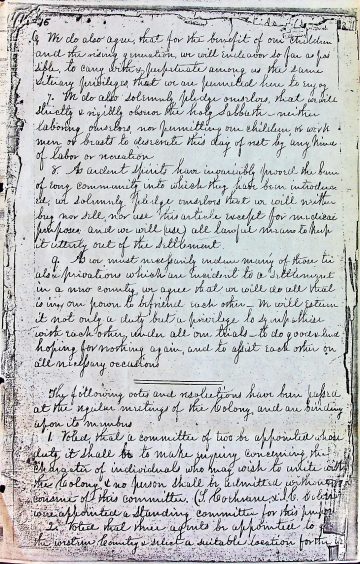 6 We do also agree, that for the benefit of our children
and the rising generation, we will endeavor so far as pos
sible, to carry with & perpetuate among us the same
literary privileges that we are permitted here to enjoy
7. We do also solemnly pledge ourselves that we will
strictly & rigidly observe the holy Sabbath - neither
laboring ourselves, nor permitting our children, or work
men or beasts to desecrate this day of rest by any kind
of labor or recreation
8. As ardent spirits have invariably proved the bane
of every community into which they have been introduc
ed, we solemnly pledge ourselves that we will neither
buy nor sell, nor use this article except for medical
purposes, and we will use all lawful means to keep
it utterly out of the settlement
9. As we must necessarily endure many of those tri
als & privations which are incident to a settlement
in a new country, we agree that we will do all that
is in our power to befriend each other - We will esteem
it not only a duty but a privilege to sympathise
with each other, under all our trials - to do good & lend
hoping for nothing again, and to assist each other on
all necessary occasions
The following votes and resolutions have been passed
at the regular meetings of the Colony, and are binding
upon its members
1. Voted, that a committee of two be appointed whose
duty it shall be to make inquiry concerning the
character of individuals who may wish to unite with
the Colony, & no person shall be admitted without the
consent of this committee. (I. Cochrane & I. C.
were appointed a standing committee for this purpose
2. Voted that three agents be appointed to
the western Country & select a suitable location for the